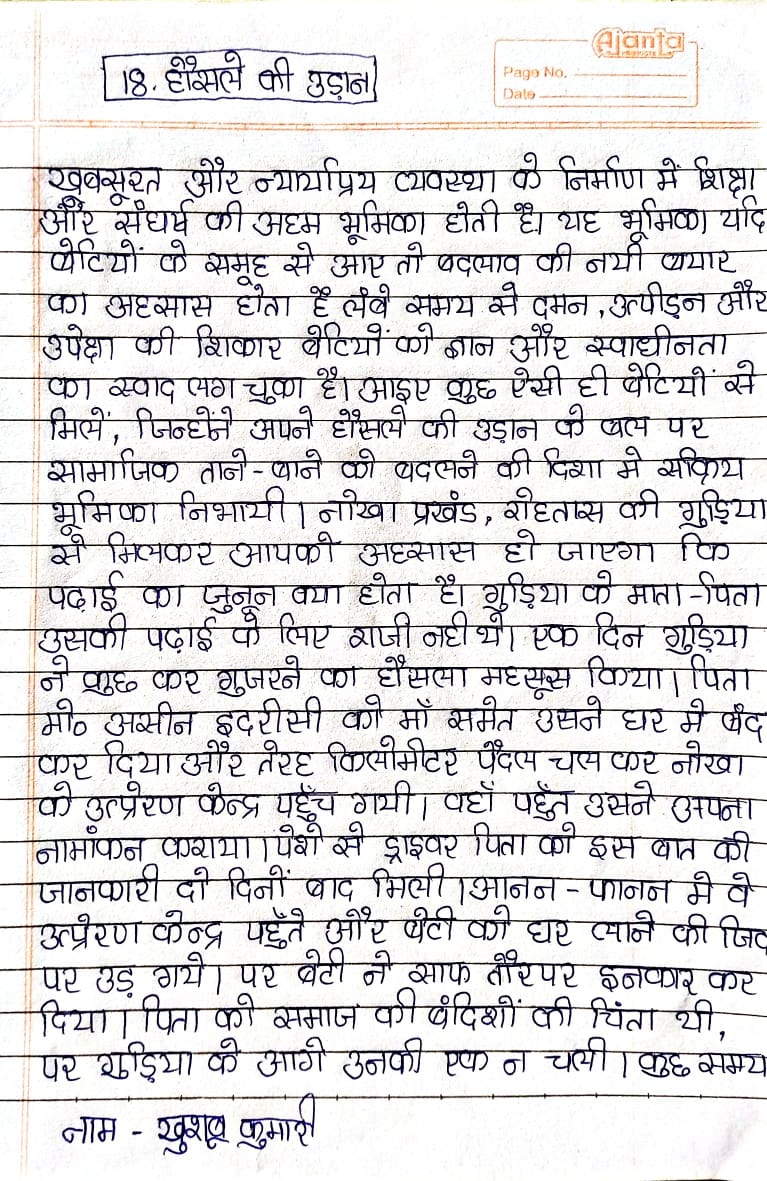 Ajanta
Page No.
Date
18. हौसले की उड़ान
खूबसूरत और न्यायप्रिय व्यवस्था के निर्माण में शिक्षा
और संघर्ष की अहम भूमिका होती है। यह भूमिका यदि
बेटियों के समूह से आए तो बदलाव की नयी बयार
का अहसास होता है लंबे समय से दमन, उत्पीड़न और
उपेक्षा की शिकार बेटियों को ज्ञान और स्वाधीनता
का स्वाद लग चुका है। आइए कुछ ऐसी ही बेटियों से
मिलें, जिन्होंने अपने हौसले की उड़ान के बल पर
सामाजिक ताने-बाने को बदलने की दिशा मे सक्रिय
भूमिका निभायी। नोखा प्रखंड, रोहतास की गुड़िया
से मिलकर आपको अहसास हो जाएगा कि
पढाई का जुनून क्या होता है। गुड़िया के माता-पिता
उसकी पढ़ाई के लिए राजी नही थे। एक दिन गुड़िया
ने कुछ कर गुजरने का हौसला महसूस किया। पिता
मो० असीन इदरीसी को माँ समेत उसने घर मे बंद
कर दिया और तेरह किलोमीटर पैदल चल कर नोखा
के उत्प्रेरण केन्द्र पहुँच गयी। वहाँ पहुँत उसने अपना
नामांकन कराया। पेशे से ड्राइवर पिता को इस बात की
जानकारी दो दिनों बाद मिली। आनन-फानन मे वे
उत्प्रेरण केन्द्र पहुँते और बेटी को घर लाने की जिद
पर उड़ गये। पर बेटी ने साफ तौरपर इनकार कर
दिया। पिता को समाज की बंदिशों की चिंता थी,
पर गुड़िया के आगे उनकी एक न चली। कुछ समय
नाम - खुशबू कुमारी